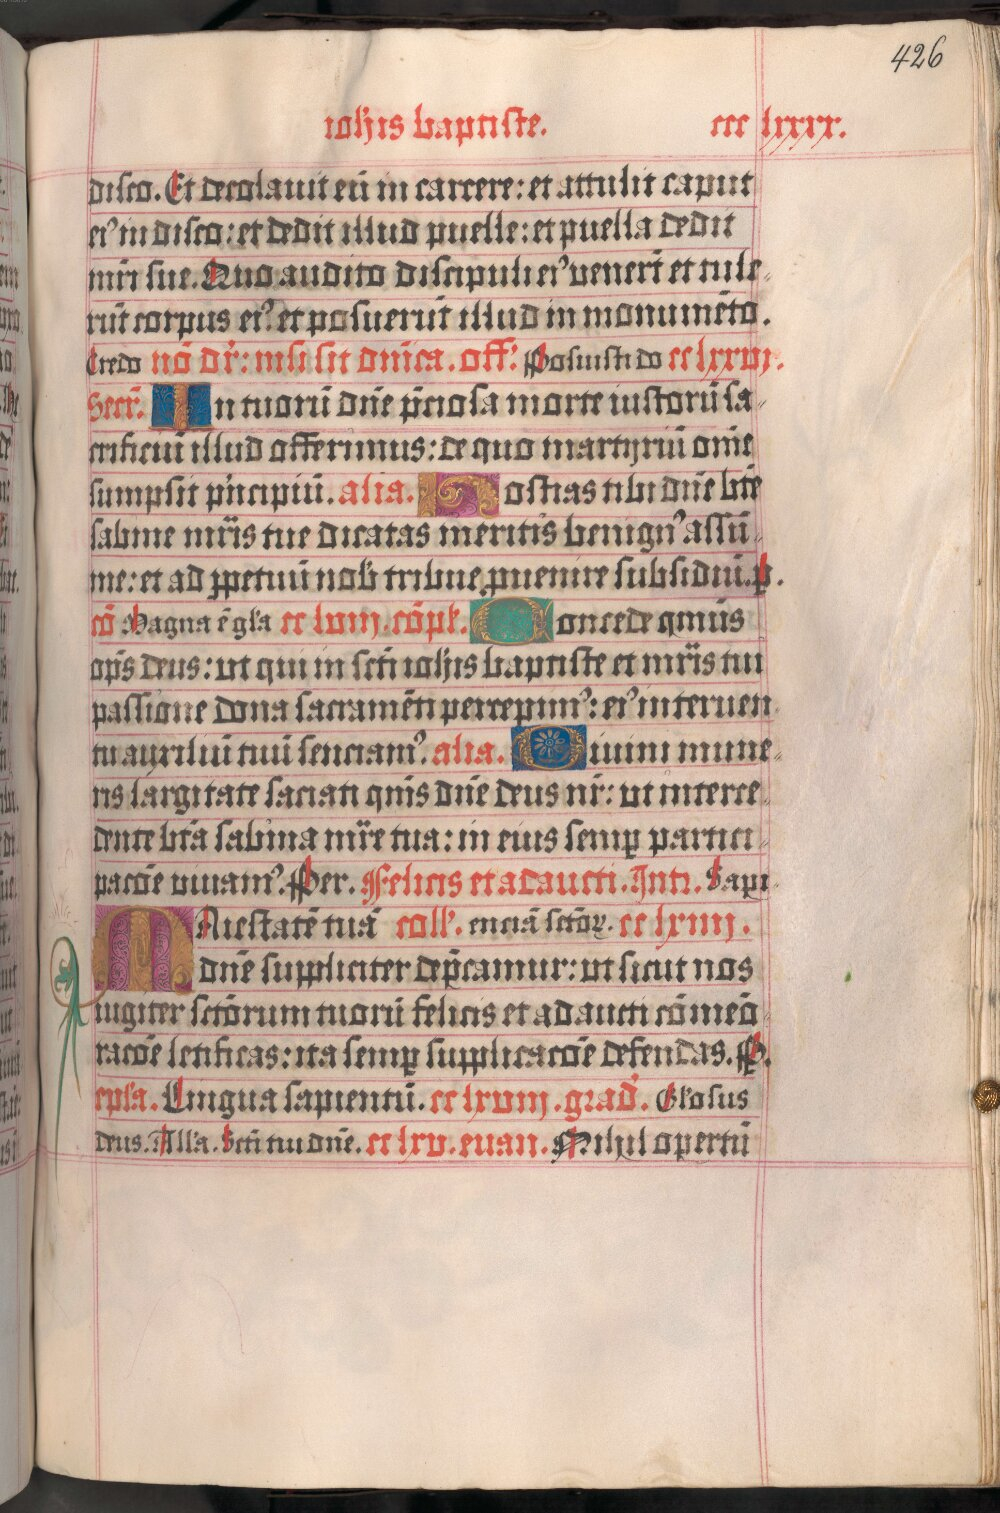 426
ioh̄is baptiste. ccc lxxxx.
disco. Et decolauit eū in carcere: et attulit caput
eiꝰ in disco: et dedit illud puelle: et puella dedit
mr̄i sue. Quo audito discipuli eiꝰ uener̄t et tule-
rūt corpus eiꝰ. et posuerūt illud in monumēto.
Credo nō dr̄: nisi sit dn̄ica. off. Posuisti do cc lxxvi.
Secr̄. In tuorū dn̄e p̄ciosa morte iustorū sa-
crificiū illud offerimus: de quo martyriū om̄e
sumpsit prīcipiū. alia. Hostias tibi dn̄e bt̄e
sabine mr̄is tue dicatas meritis benignꝰ assū-
me: et ad ꝑpetuū nob̄ tribue ꝓuenire subsidiū. p.
cō Magna ē gl̄a cc lviij. cōpl̄. Concede qm̄us
op̄s deus: ut qui in sc̄ti ioh̄is baptiste et mr̄is tui
passione dona sacramēti percepimꝰ: eiꝰ interuen-
tu auxiliū tuū senciamꝰ. alia. Diuini mune-
ris largitate saciati qm̄s dn̄e deus nr̄: ut interce-
dente bt̄a sabina mr̄e tua: in eius semꝑ partici-
pacōe uiuamꝰ. Per. Felicis et adaucti. Int̄. Sapi-
MAiestatē tuā coll̄. enciā sc̄toꝝ. cc lxiiij.
dn̄e suppliciter dep̄camur: ut sicut nos
iugiter sc̄tōrum tuorū felicis et adaucti cōmeō-
racōe letificas: ita semꝑ supplicacōe defendas. P.
epl̄a. Lingua sapientū. cc lxviij. grad̄. Gl̄osus
deus. All̄a. Sc̄ti tui dn̄e. cc lxv. euan. Nihil opertū